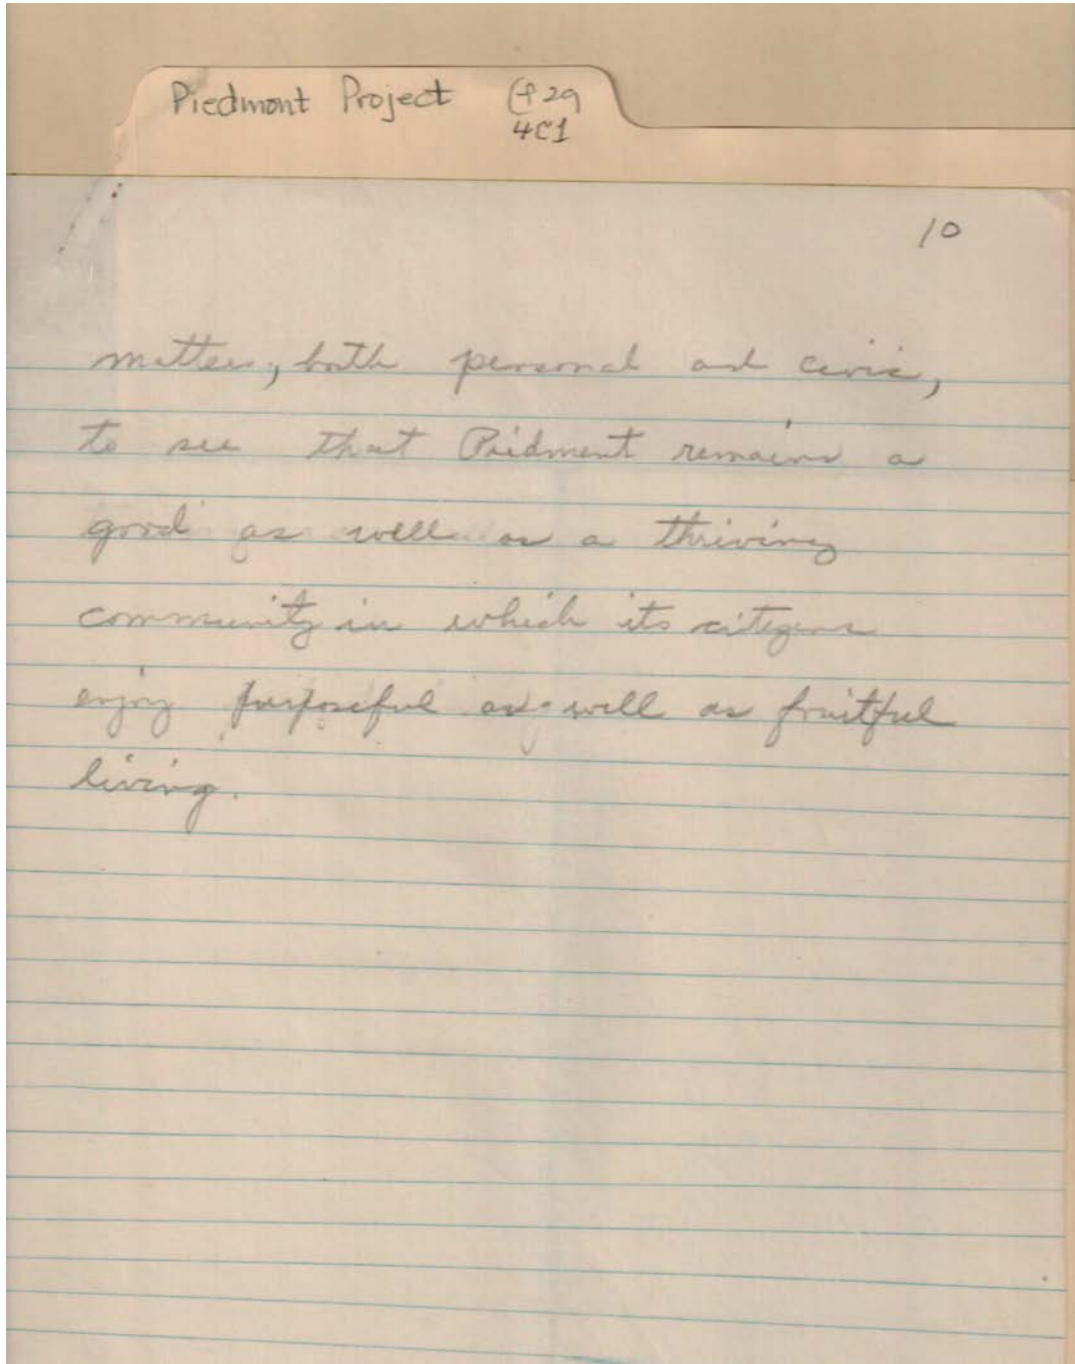 Piedmont Project (f 29
4C1
10
matters, both personal and civic,
to see that Piedmont remains a
good as well as a thriving
community in which its citizens
enjoy purposeful as well as fruitful
living.